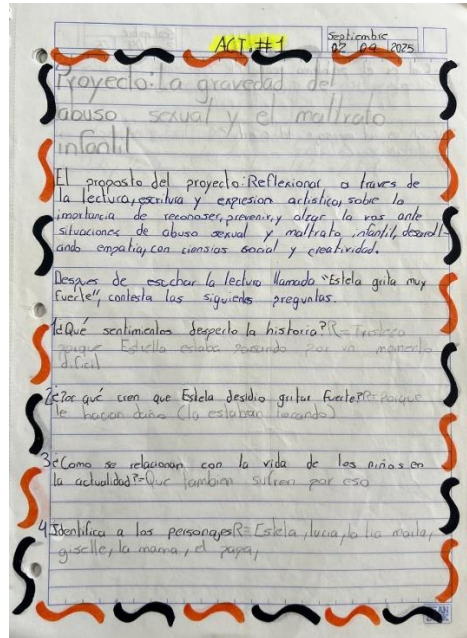 ACT.#1
Septiembre
02 09 2025
Proyecto:La gravedad del
abuso sexual y el maltrato
infantil
El proposto del proyecto:Reflexionar a traves de
la lectura,escritura y expresion artistica, sobre la
imortancia de reconoser,prevenir,y alzar la vos ante
situaciones de abuso sexual y maltrato infantil, desarroll-
ando empatia,con ciensias social y creatividad.
Despues de escuchar la lectura llamado "Estela grita muy
fuerte", contesta las siguients preguntas.
1¿Qué sentimientos desperto la historia?R=Tristeza
porque Estrella estaba pasando por un momento
dificil
2¿Por qué cren que Estela desidio gritar fuerte?R=porque
le hacian daño (la estaban tocando)
3¿Como se relacionan con la vida de los niños en
la actualidad?=Que tambien sufren por eso
4.Identifica a los personajesR=Estela, lucia, la tia
giselle, la mama, el papa,